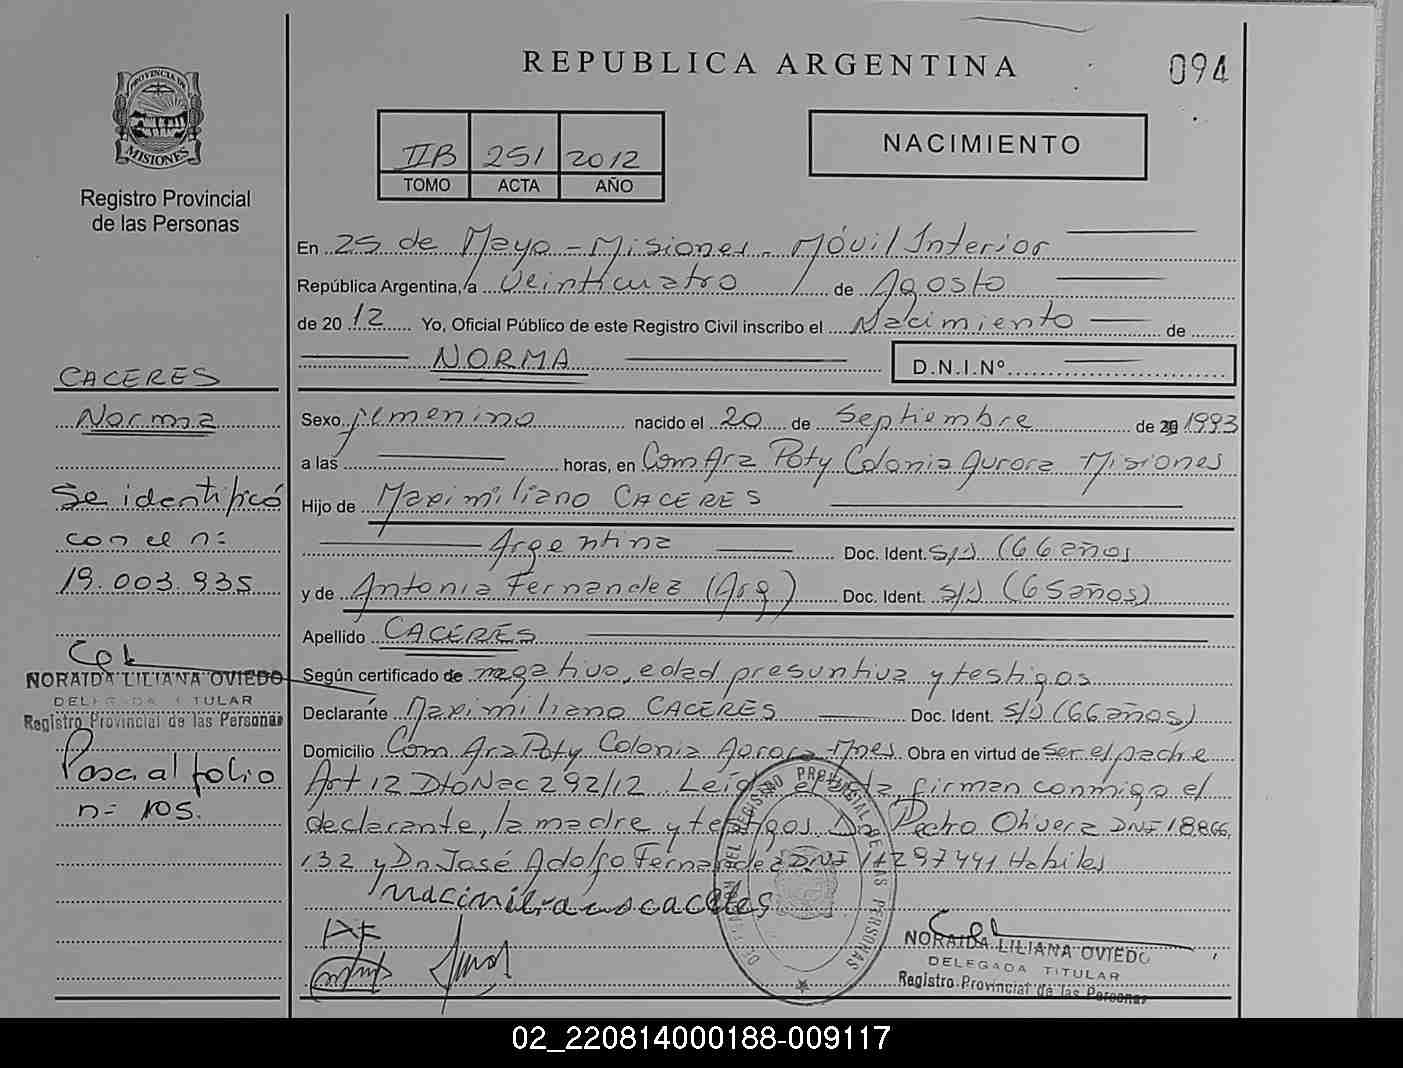 REPUBLICA ARGENTINA
094
PROVINCIA DE
MISIONES
Registro Provincial
de las Personas
IIB 251 2012
TOMO ACTA AÑO
NACIMIENTO
En 25 de Mayo - Misiones - Móvil Interior
República Argentina, a Veinticuatro de Agosto
de 2012 Yo, Oficial Público de este Registro Civil inscribo el Nacimiento de
NORMA D.N.I.Nº
CACERES
Norma
Se identificó
con el nº
19.003.935
NORAIDA LILIANA OVIEDO
DELEGADA TITULAR
Registro Provincial de las Personas
Pasa al folio
nº 105.
Sexo femenino nacido el 20 de Septiembre de 1993
a las horas, en Com Ara Poty Colonia Aurora Misiones
Hijo de Maximiliano CACERES
Argentina Doc. Ident. S/D (66 años
y de Antonia Fernandez (Arg) Doc. Ident. S/D (65 años)
Apellido CACERES
Según certificado de negativo, edad presuntiva y testigos
Declarante Maximiliano CACERES Doc. Ident. S/D (66 años)
Domicilio Com Ara Poty Colonia Aurora Mnes. Obra en virtud de ser el padre
Art 12 Dto Nac 292/12. Leída el acta, firman conmigo el
declarante, la madre y testigos Dn Pedro Olivera DNI 18.866.
132 y Dn José Adolfo Fernandez DNI Habiles
AF
NORAIDA LILIANA OVIEDO
DELEGADA TITULAR
Registro Provincial de las Personas
02_220814000188-009117